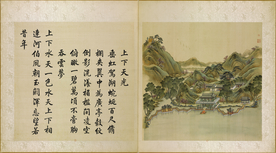 上下天光
垂虹駕湖蜿蜒百尺修
欄夾翼中為廣亭縠紋
倒影滉瀁楣檻間凌空
俯瞰一碧萬頃不啻胸
吞雲夢
上下水天一色水天上下相
連河伯夙朝玉闕渾忘望若
昔年